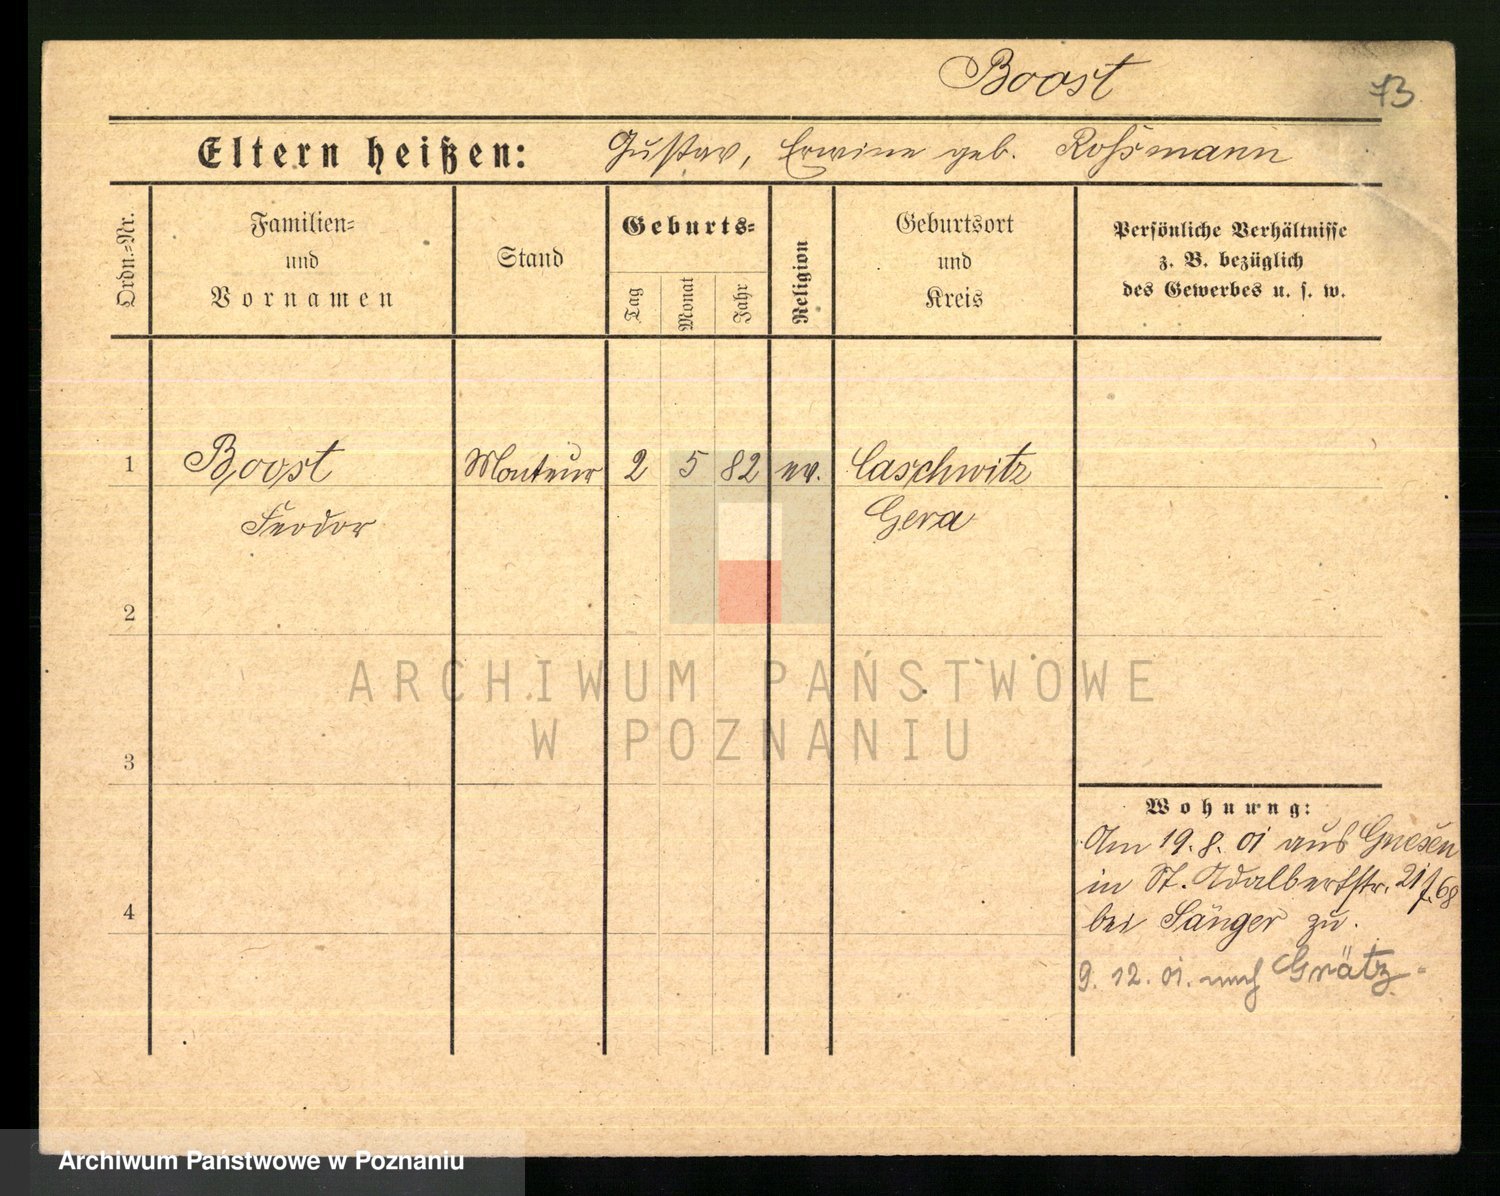 Boost
73
Eltern heißen: Gustav, Erwine geb. Roßmann
Ordn.-Nr.
Familien-
und
Vornamen
Stand
Geburts-
Tag
Monat
Jahr
Religion
Geburtsort
und
Kreis
Persönliche Verhältnisse
z. B. bezüglich
des Gewerbes u. s. w.
1 Boost Monteur 2 5 82 ev. Caschwitz
Feodor Gera
2
3
4
ARCHIWUM PAŃSTWOWE
W POZNANIU
Wohnung:
Am 19. 8. 01 aus Gnesen
in St. Adalbertstr. 21 f. 68
bei Sänger zu.
9. 12. 01. nach Grätz.
Archiwum Państwowe w Poznaniu